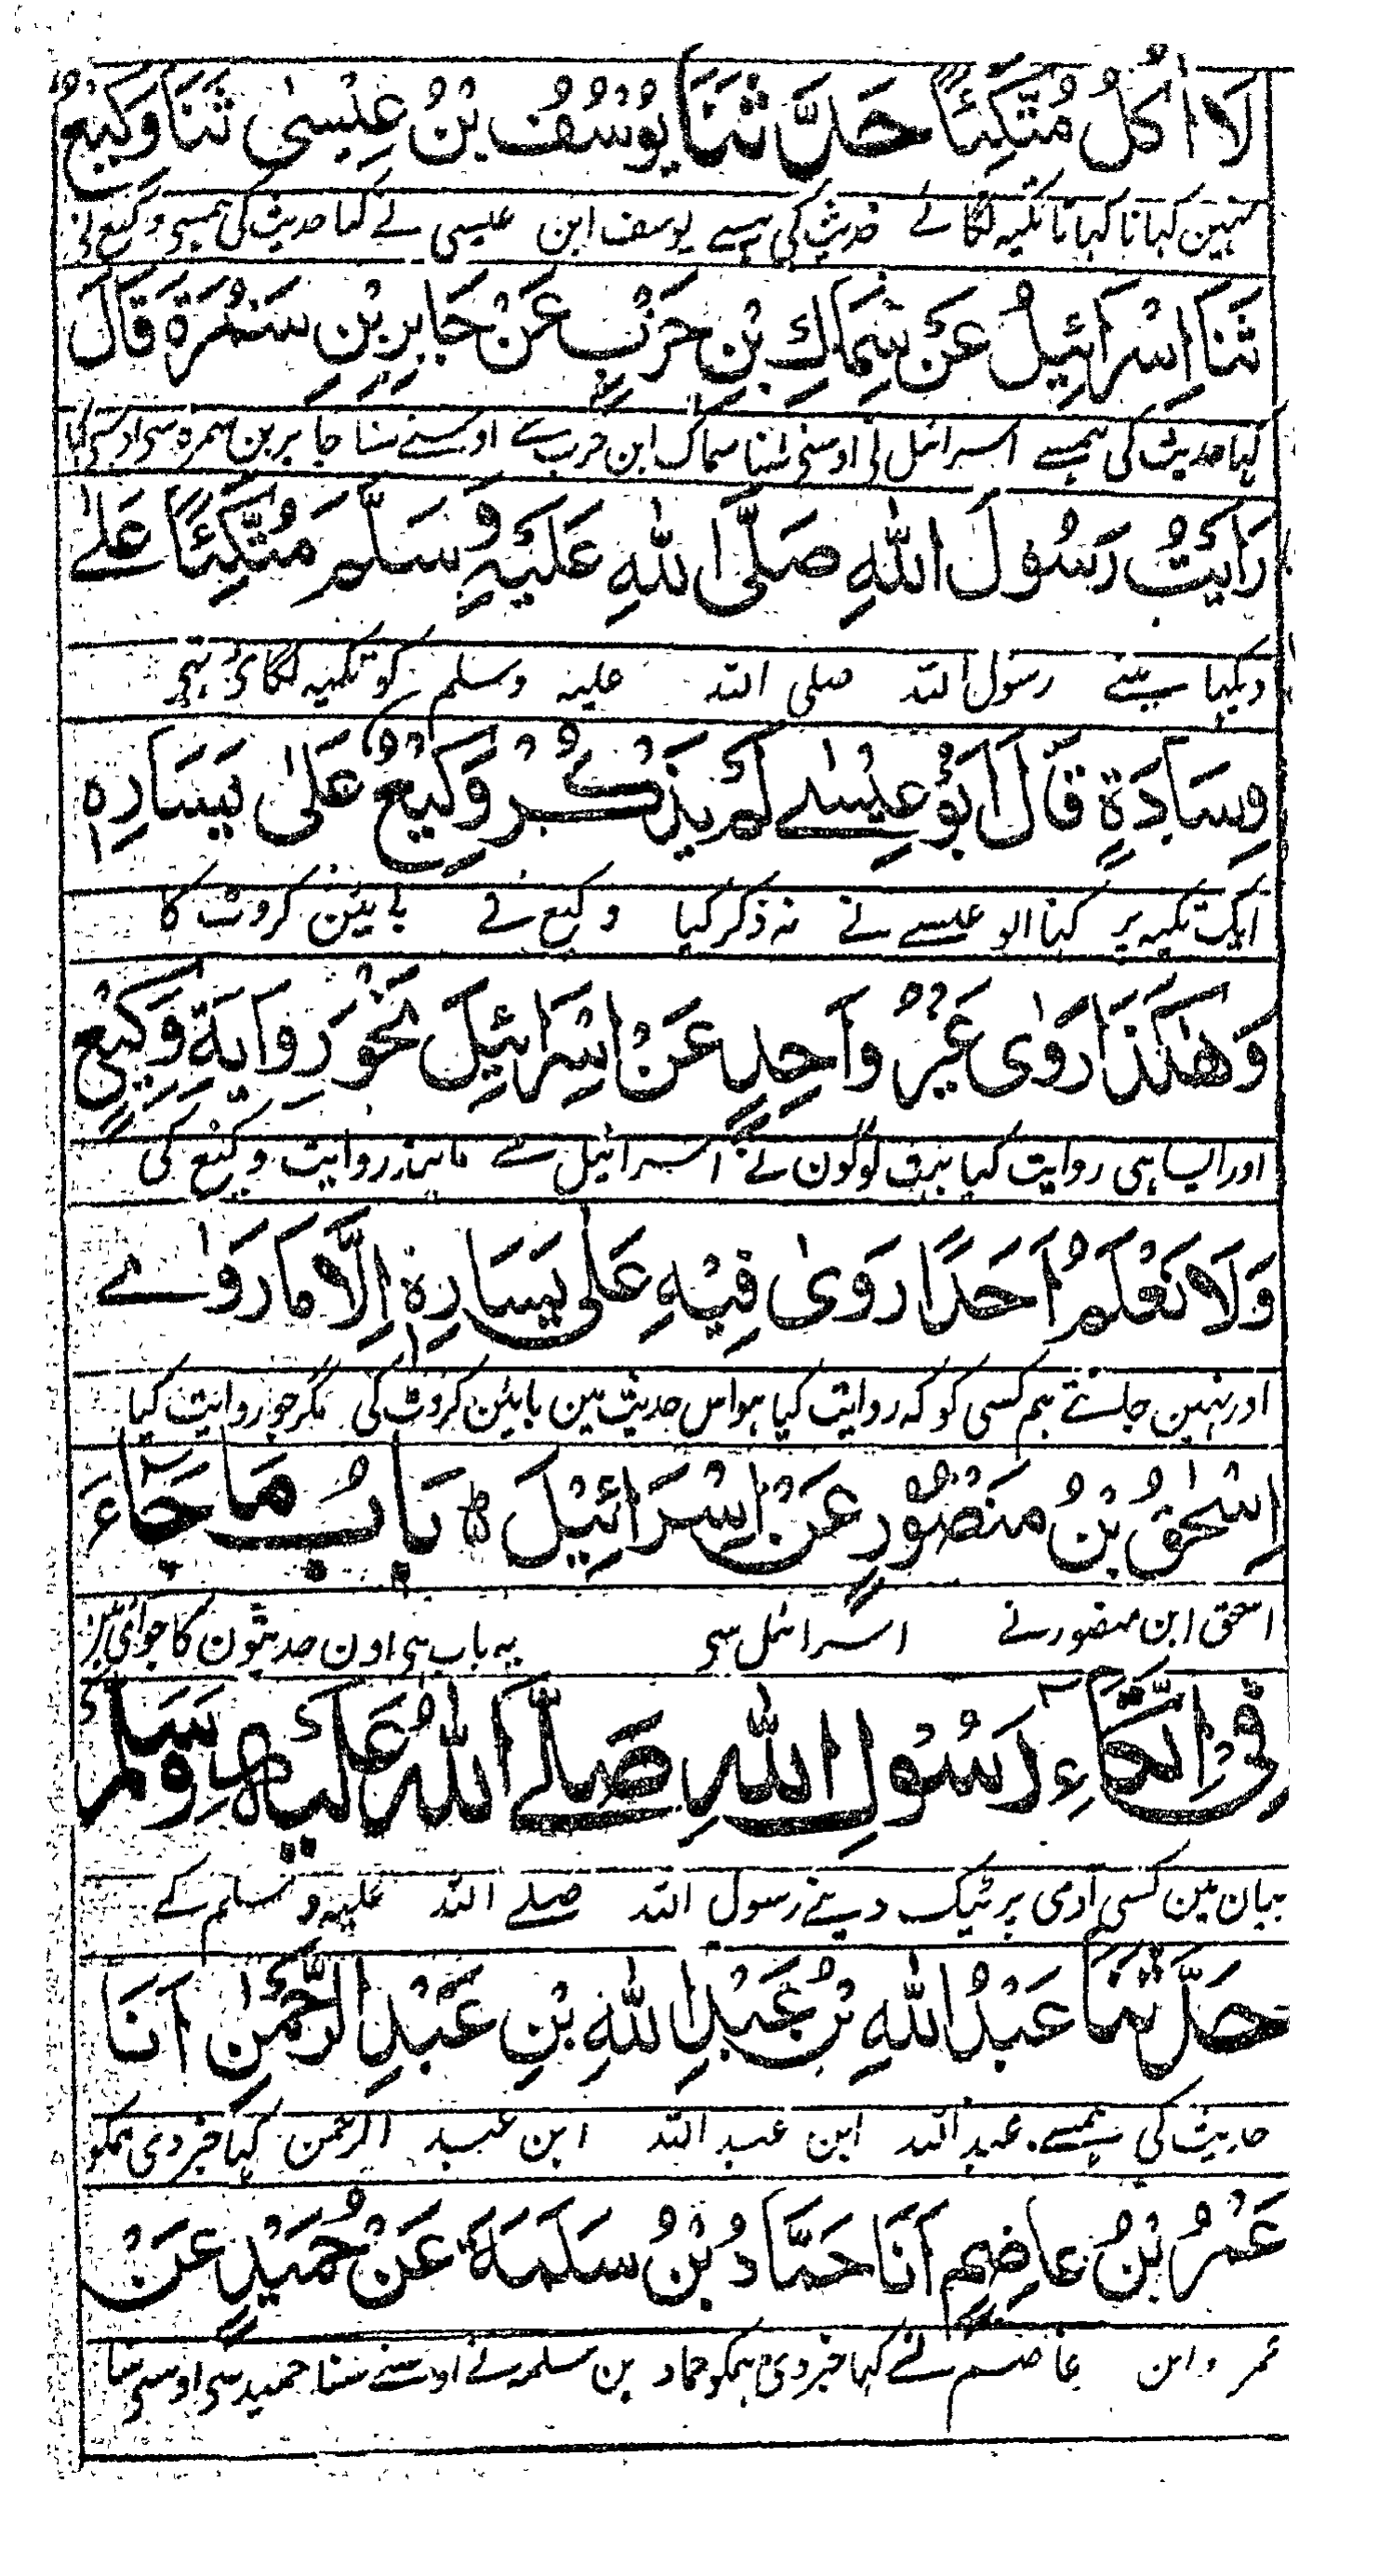 لَا اٰكُلُ مُتَّكِئًا حَدَّ ثَنَا يُوْسُفُ بْنُ عِيْسٰى ثَنَا وَكِيْعٌ
نہین کہانا کہانا تکیہ لگا کے حدیث کی ہمسے یوسف ابن عیسی نے کہا حدیث کی ہمسی وکیع نی
ثَنَا اِسْرَائِيْلُ عَنْ سِمَاكِ بْنِ حَرْبٍ عَنْ جَابِرِ بْنِ سَمُرَةَ قَالَ
کہا حدیث کی ہمسے اسرائیل نی اوسنی سنا سماک ابن حرب سے اوسنے سنا جابر بن سمرہ سی اوسنی کہا
رَاَيْتُ رَسُوْلَ اللّٰهِ صَلَّى اللّٰهِ عَلَيْهِ وَسَلَّمَ مُتَّكِئًا عَلٰے
دیکہا مینے رسول اللہ صلی اللہ علیہ وسلم کو تکیہ لگائی ہوئی
وِسَادَةٍ قَالَ اَبُوْ عِيْسٰے لَمْ يَذْكُرْ وَكِيْعٌ عَلٰى يَسَارِهٖ
ایک تکیہ پر کہا ابو عیسے نے نہ ذکر کیا وکیع نے بائین کروٹ کا
وَهٰكَذَا رَوٰى غَيْرُ وَاحِدٍ عَنْ اِسْرَائِيْلَ نَحْوَ رِوَايَةِ وَكِيْعٍ
اور ایسا ہی روایت کیا بہت لوگون نے اسرائیل سے مانند روایت وکیع کی
وَلَا نَعْلَمُ اَحَدًا رَوٰى فِيْهِ عَلٰى يَسَارِهٖ اِلَّا مَا رَوٰے
اور نہین جانتے ہم کسی کو کہ روایت کیا ہو اس حدیث مین بائین کروٹ کی مگر جو روایت کیا
اِسْحٰقُ بْنُ مَنْصُوْرٍ عَنْ اِسْرَائِيْلَ بَابُ مَا جَاءَ
اسحق ابن منصور نے اسرائیل سی یہ باب ہی اون حدیثون کا جو آئی ہین
فِيْ اِتِّكَاءِ رَسُوْلِ اللّٰهِ صَلَّے اللّٰهُ عَلَيْهِ وَسَلَّمَ
بیان مین کسی آدمی پر ٹیک دینے رسول اللہ صلے اللہ علیہ وسلم کے
حَدَّ ثَنَا عَبْدُ اللّٰهِ بْنُ عَبْدِ اللّٰهِ بْنِ عَبْدِ الرَّحْمٰنِ اَنَا
حدیث کی ہمسے عبد اللہ ابن عبد اللہ ابن عبد الرحمن کہا خبر دی ہمکو
عَمْرُ بْنُ عَاصِمٍ اَنَا حَمَّادُ بْنُ سَلَمَةَ عَنْ حُمَيْدٍ عَنْ
عمرو ابن عاصم نے کہا خبر دی ہمکو حماد بن سلمہ نے اوسنے سنا حمید سی اوسنی سنا